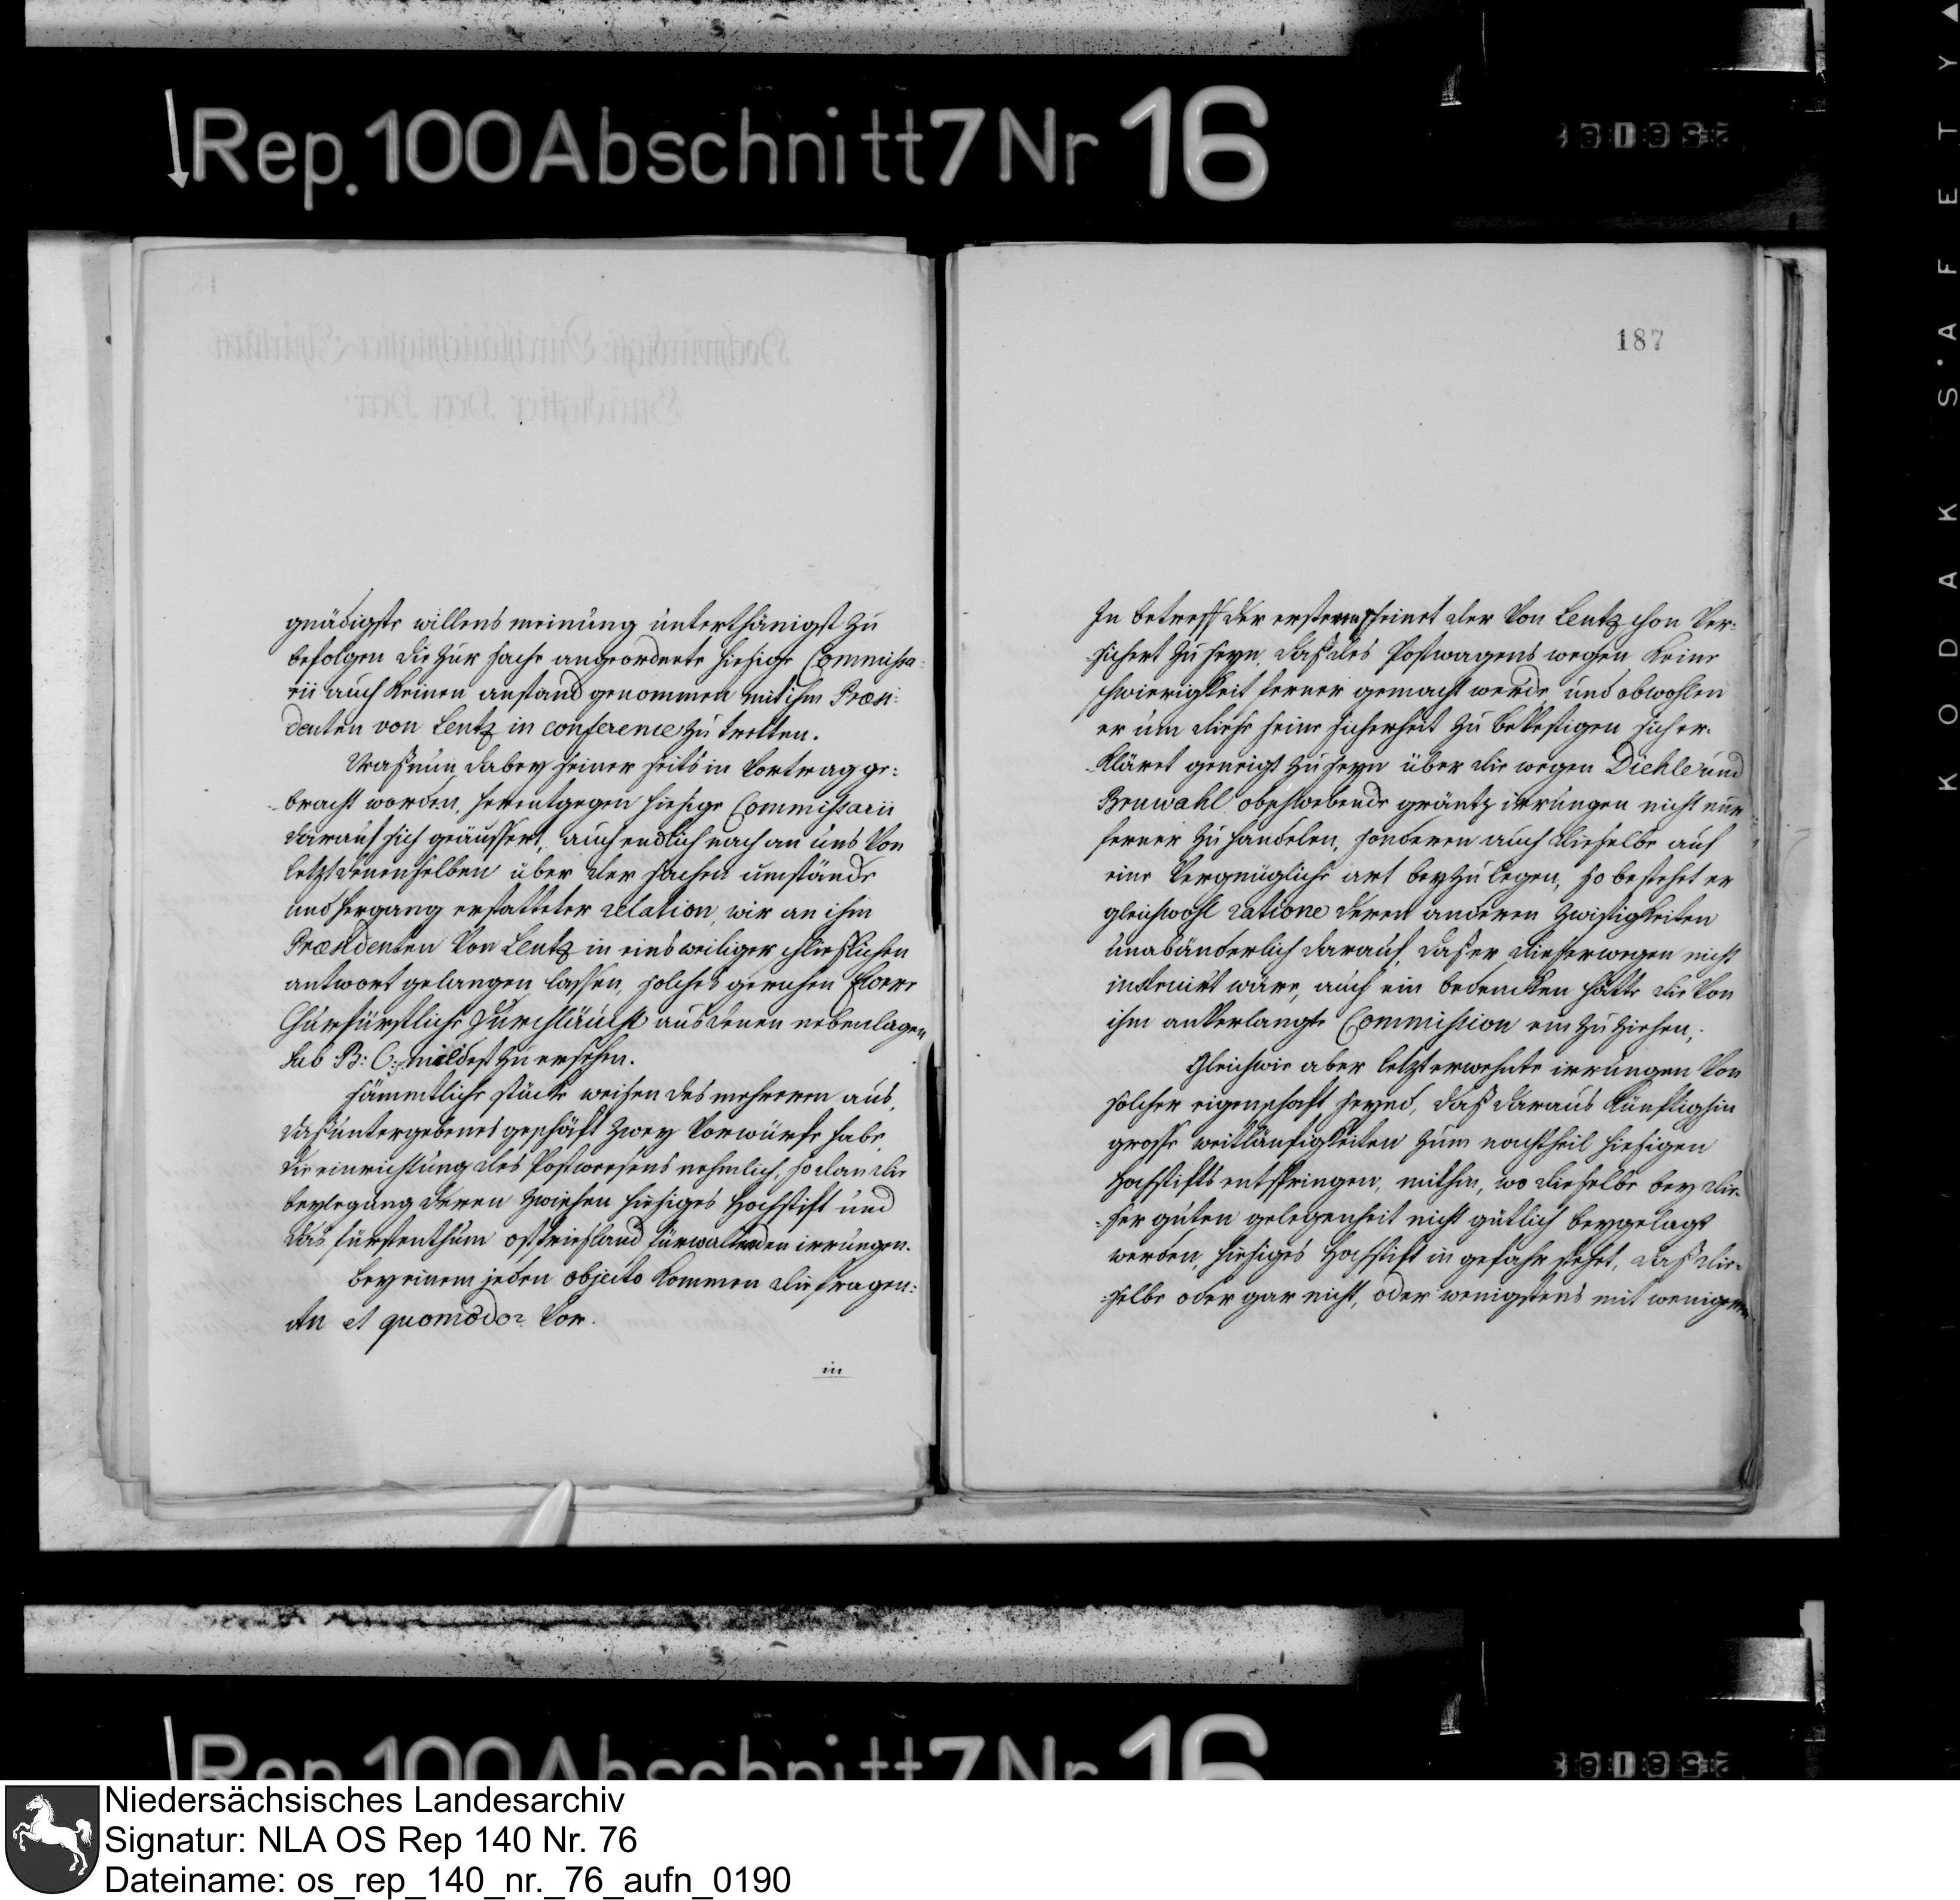 Rep. 100 Abschnitt 7 Nr 16
gnädigste willens meinung unterthänigst zu
befolgen die zur sache angeordnete hiesige Commissa-
rii auch keinen anstand genommen mit ihm Præsi-
denten von Lentz in conference zu tretten.
Was nun dabey seiner seits in Vortrag ge-
bracht worden, herentgegen hiesige Commissarii
darauf sich geäussert, auch endlich nach an uns Von
letzt denenselben über der sachen umstände
und hergang erstatteter relation, wir an ihm
Præsidenten Von Lentz in einsweiliger schließlichen
antwort gelangen lassen, solches geruhen Ewere
Churfürstliche Durchläucht aus denen nebenlagen
sub B: C: mildest zu ersehen.
Sämmtliche stücke weisen des mehreren aus,
daß untergebenes geschäft zwey Vorwürfe habe
die einrichtung des Postweesens nehmlich, so dan die
beylegung deren zwischen hiesiges Hochstift und
das fürstenthum ostfriesland fürwaltenden irrungen.
bey einem jeden objecto kommen die fragen:
An et quomodo? Vor.
in
187
In betreff der ersteren scheinet der Von Lentz schon Ver-
sichert zu seyn, daß des Postwagens wegen keine
schwierigkeit ferner gemacht werde, und obwohlen
er um diese seine sicherheit zu bevestigen sich er-
kläret geneigt zu seyn über die wegen Diehle und
Bruwahl obschwebende gräntz irrungen nicht nur
ferner zu handelen, sonderen auch dieselbe auf
eine Vergnügliche art beyzulegen, so bestehet er
gleichwohl ratione deren anderen zwistigkeiten
unabänderlich darauf, daß er dieserwegen nicht
instruirt wäre, auch ein bedencken hätte die Von
ihm anverlangte Commission einzuziehen,
Gleichwie aber letzterwehnte irrungen Von
solcher eigenschaft seynd, daß daraus künftighin
grosse weitläufigkeiten zum nachtheil hiesigen
Hochstifts entspringen, mithin, wo dieselbe bey die-
ser guten gelegenheit nicht gütlich beygelagt
werden, hiesiges Hochstift in gefahr stehet, daß die-
selbe oder gar nicht, oder wenigstens mit wenigeren
KODAK SAFETY
Rep. 100 Abschnitt 7 Nr 16
Niedersächsisches Landesarchiv
Signatur: NLA OS Rep 140 Nr. 76
Dateiname: os_rep_140_nr._76_aufn_0190